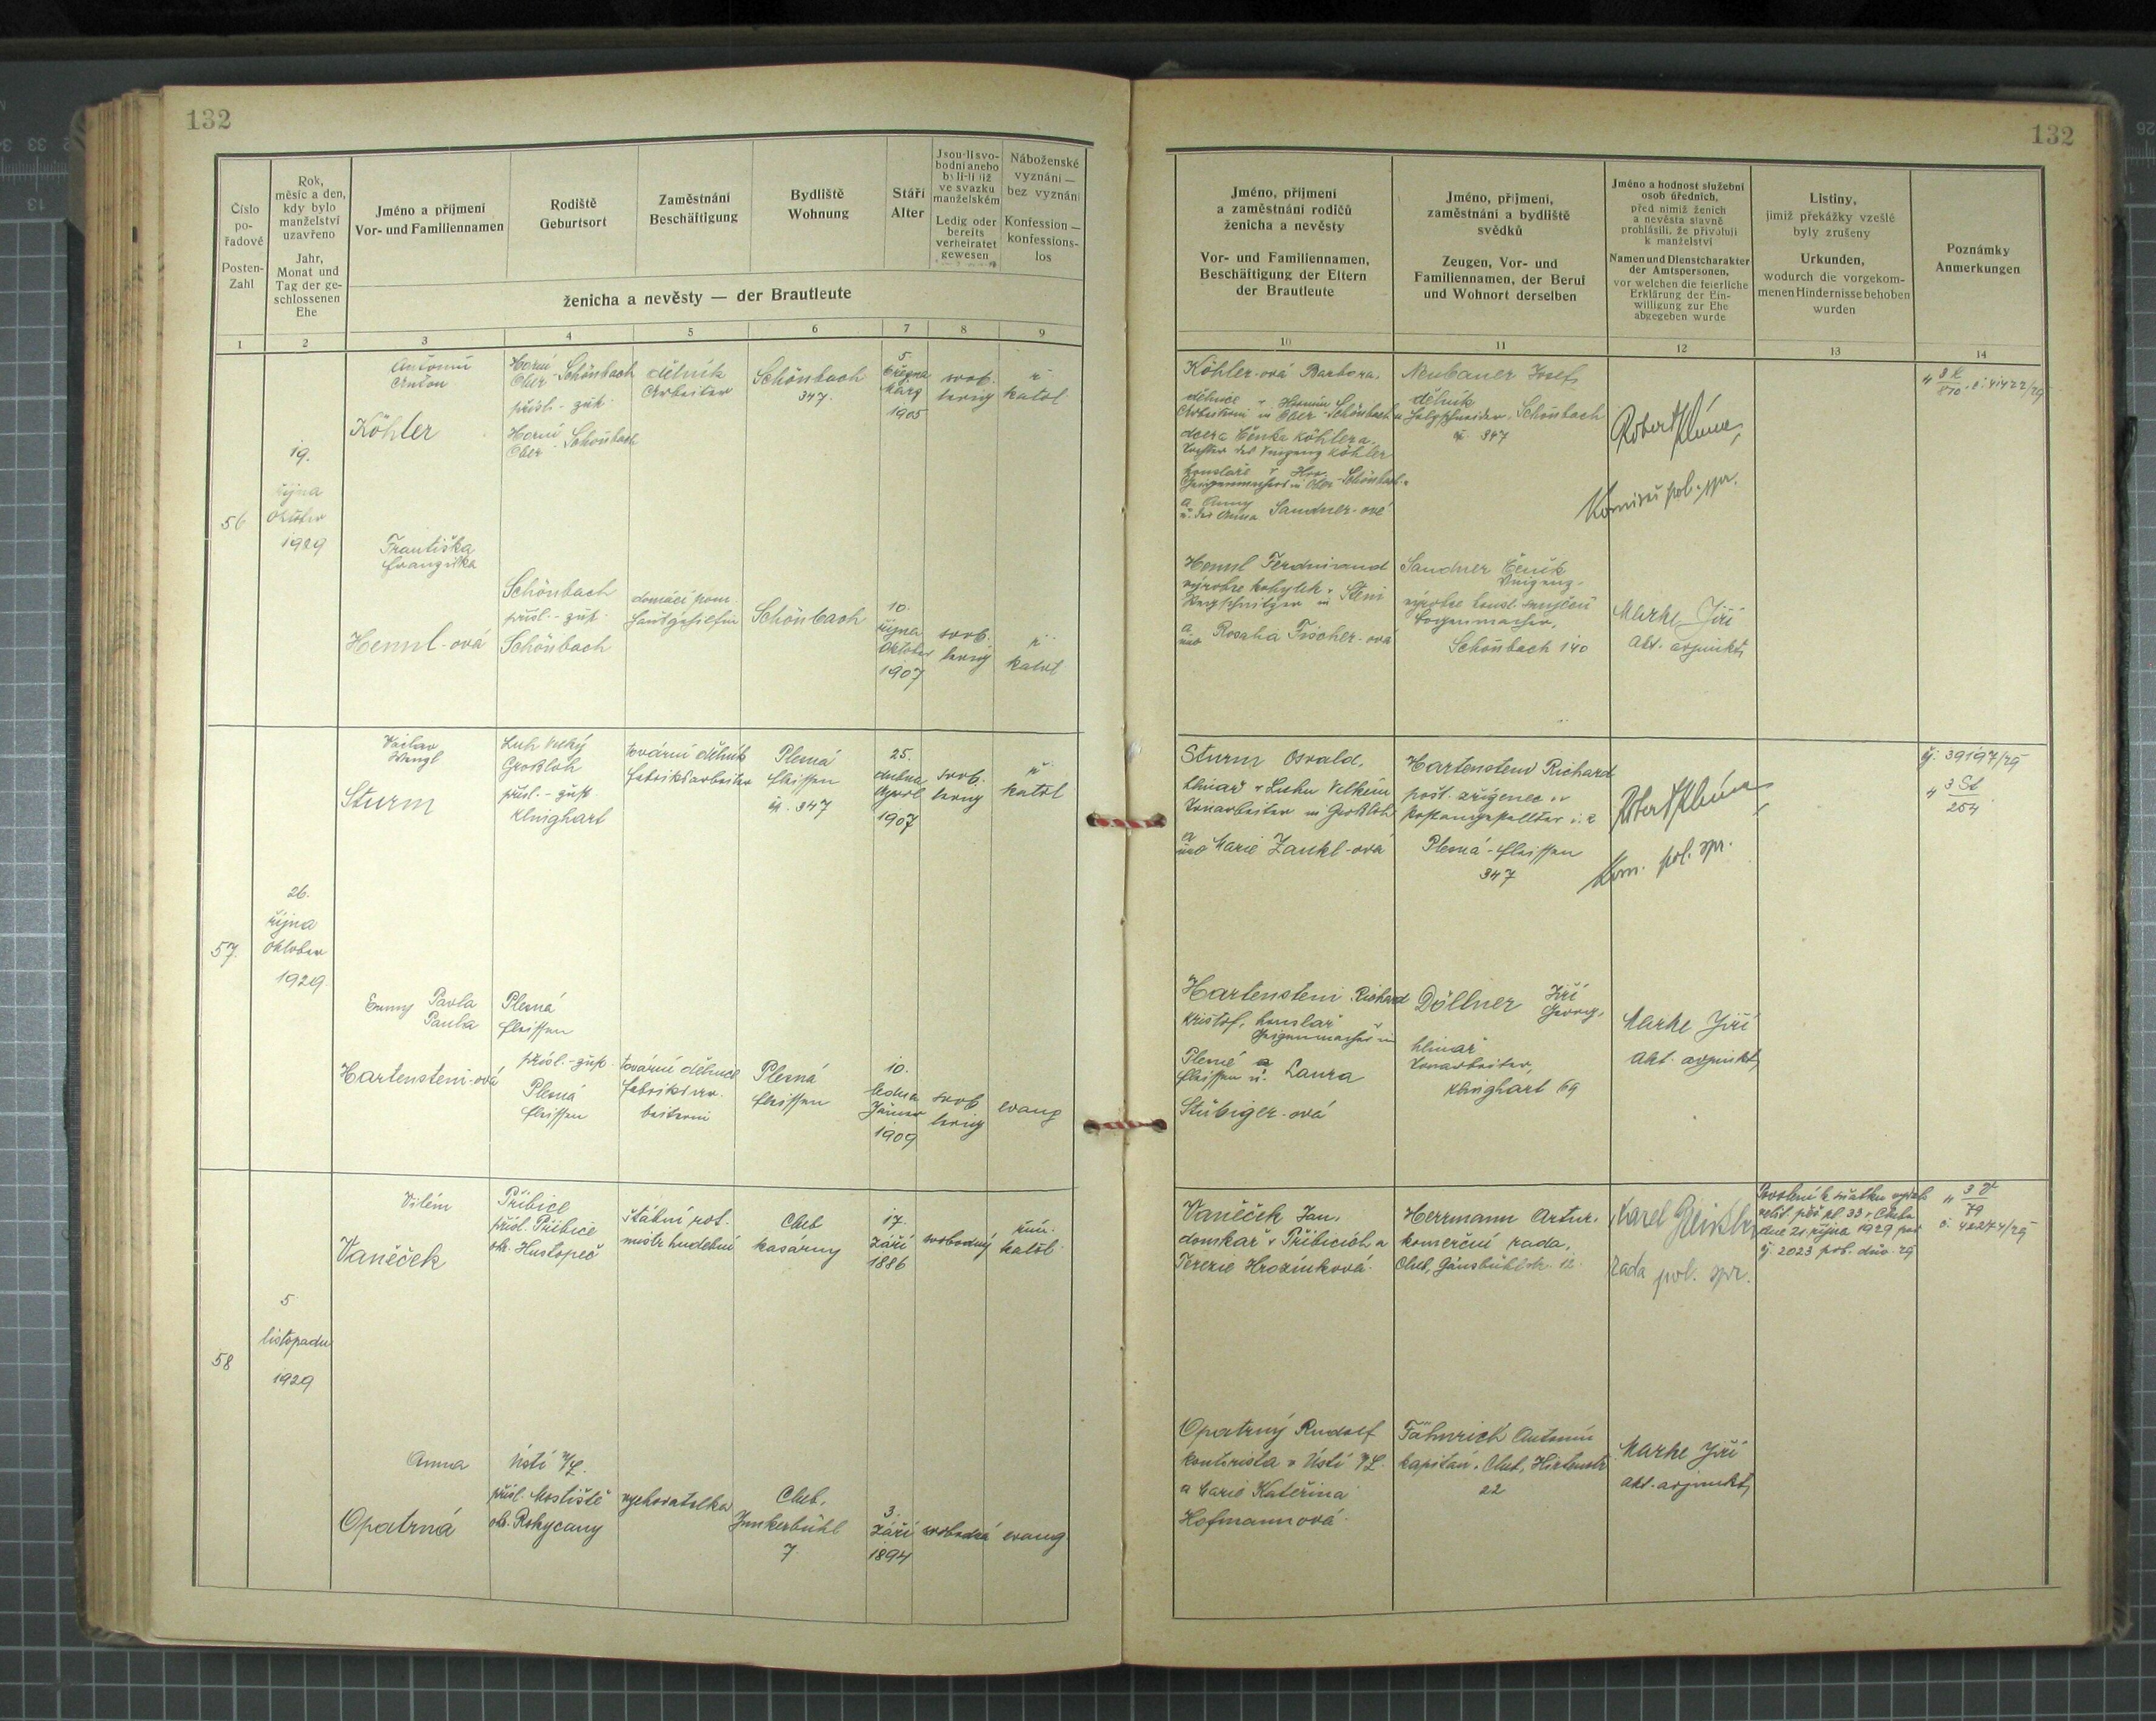 132
132
Číslo pořadové
Posten-Zahl
Rok, měsíc a den, kdy bylo manželství uzavřeno
Jahr, Monat und Tag der geschlossenen Ehe
Jméno a příjmení
Vor- und Familiennamen
Rodiště
Geburtsort
Zaměstnání
Beschäftigung
Bydliště
Wohnung
Stáří
Alter
Jsou-li svobodni anebo byli-li již ve svazku manželském
Ledig oder bereits verheiratet gewesen
Náboženské vyznání — bez vyznání
Konfession — konfessionslos
ženicha a nevěsty — der Brautleute
1 2 3 4 5 6 7 8 9
Jméno, příjmení a zaměstnání rodičů ženicha a nevěsty
Vor- und Familiennamen, Beschäftigung der Eltern der Brautleute
Jméno, příjmení, zaměstnání a bydliště svědků
Zeugen, Vor- und Familiennamen, der Beruf und Wohnort derselben
Jméno a hodnost služební osob úředních, před nimiž ženich a nevěsta slavně prohlásili, že přivolují k manželství
Namen und Dienstcharakter der Amtspersonen, vor welchen die feierliche Erklärung der Einwilligung zur Ehe abgegeben wurde
Listiny, jimiž překážky vzešlé byly zrušeny
Urkunden, wodurch die vorgekommenen Hindernisse behoben wurden
Poznámky
Anmerkungen
10 11 12 13 14
56
19.
října
Oktober
1929
Antonín
Anton
Köhler
Horní
Ober Schönbach
přísl. - zust.
Horní
Ober Schönbach
dělník
Arbeiter
Schönbach
347.
5.
března
März
1905
svob.
ledig
ř.
katol
Köhler-ová Barbora,
dělnice v Horním
Arbeiterin in Ober-Schönbach
dcera Čeňka Köhlera
Tochter des Vinzenz Köhler
houslaře v Hor.
Geigenmachers in Ober-Schönbach
a Anny
u. der Anna Sandner-ové
Neubauer Josef,
dělník
Schönbach
č. 347
Robert Klíma,
Komisař pol. spr.
Františka
Franziska
Henml-ová
Schönbach
přísl. - zust.
Schönbach
domácí pom.
Hausgehilfin
Schönbach
10.
října
Oktober
1907
svob.
ledig
ř.
katol
Henml Ferdinand
výrobce kobylek v
Stegschnitzer in
a
und Rosalia Fischer-ová
Sandner Čeněk
Vinzenz
výrobce housl. smyčců
Bogenmacher,
Schönbach 140
Marke Jiří
akt. adjunkt,
57.
26.
října
Oktober
1929
Václav
Wenzl
Sturm
Luh Velký
Großloh
přísl. - zust.
Klinghart
tovární dělník
Fabriksarbeiter
Plesná
Fleissen
čp. 347
25.
dubna
April
1907
svob.
ledig
ř.
katol
Sturm Osvald,
hlinař v Luhu Velkém
Tonarbeiter in Großloh
a
und Marie Zankl-ová
Hartenstein Richard
pošt. zřízenec v. v.
Postangestellter i. R.
Plesná-Fleissen
347
Robert Klíma,
Kom. pol. spr.
čj. 39197/29
3 St
254
Emmy Pavla
Paula
Hartenstein-ová
Plesná
Fleissen
přísl. - zust.
Plesná
Fleissen
tovární dělnice
Fabriksarbeiterin
Plesná
Fleissen
10.
ledna
Jänner
1909
svob
ledig
evang
Hartenstein Richard
Kristof, houslař
Geigenmacher in
Plesné a
Fleissen u. Laura
Stübiger-ová
Döllner Jiří
Georg,
hlinař
Tonarbeiter,
Klinghart 69
Marke Jiří
akt. adjunkt,
58
5
listopadu
1929
Vilém
Vaněček
Přibice
přísl. Přibice
okr. Hustopeč
štábní rot.
mistr hudební
Cheb
kasárny
17.
září
1886
svobodný
řím.
katol.
Vaněček Jan,
domkař v Přibicích a
Terezie Hrozinková
Herrmann Artur,
komerční rada,
Cheb, Gänsbühlstr. 12.
Karel
rada pol. spr.
Povolení k sňatku
velit. pěš. pl. 33 v Chebu
dne 21 října 1929 pod
č. 2023 pob. dův. 29
3 V
79
č. 42274/29
Anna
Opatrná
Ústí n/L.
přísl. Mostiště
okr. Rokycany
vychovatelka
Cheb,
Junkerbühl
7.
3.
září
1894
svobodná
evang.
Opatrný Rudolf
kontorista v Ústí n/L.
a Marie Kateřina
Hofmannová
Fähnrich Antonín
kapitán, Cheb, Hirtenstr.
22
Marke Jiří
akt. adjunkt,